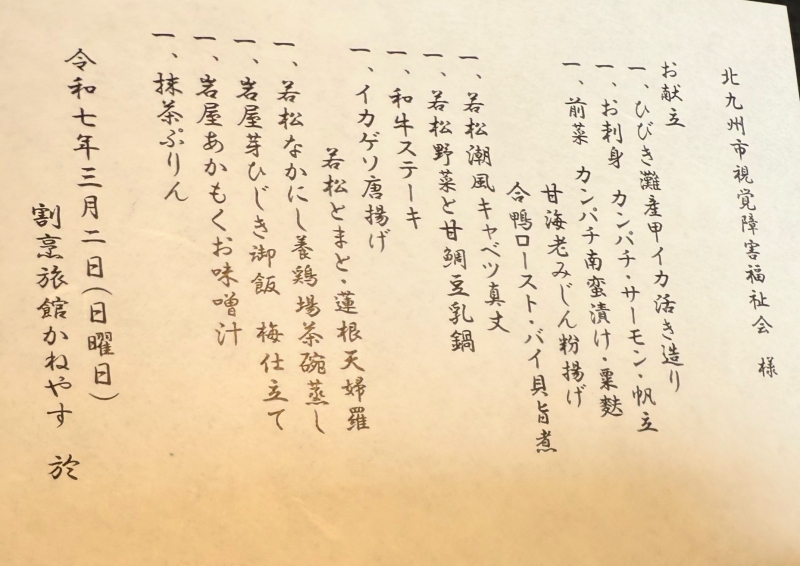 北九州市視覚障害福祉会 様
お献立
一、ひびき灘産甲イカ活き造り
一、お刺身 カンパチ・サーモン・帆立
一、前菜 カンパチ南蛮漬け・粟麩
甘海老みじん粉揚げ
合鴨ロースト・バイ貝旨煮
一、若松潮風キャベツ真丈
一、若松野菜と甘鯛豆乳鍋
一、和牛ステーキ
一、イカゲソ唐揚げ
若松とまと・蓮根天婦羅
一、若松なかにし養鶏場茶碗蒸し
一、岩屋芽ひじき御飯 梅仕立て
一、岩屋あかもくお味噌汁
一、抹茶ぷりん
令和七年三月二日(日曜日)
割烹旅館かねやす 於